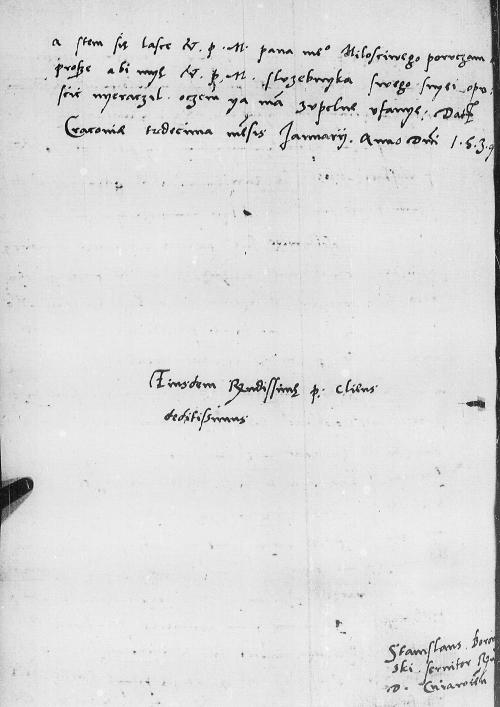 a stem się lasce V. p. M. pana meo Miłosciwego poruczam
prosze abi mye V. p. M. słuzebnyka swego snyei opu
scic nyeraczil oczem ya mā zupełne ufanye. Dat
Cracoviæ tredecima mēsis Januarij. Anno Dni 1.5.3.9
Eiusdem Rndissimæ p. cliens
deditissimus
Stanislaus
ski servitor
D.